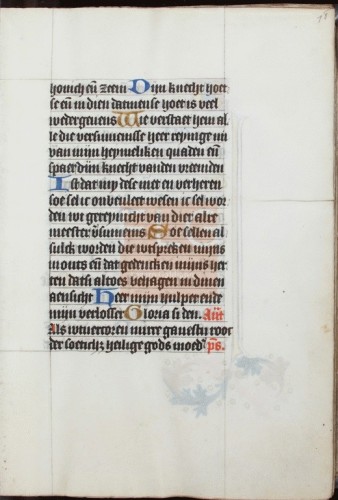 honich eñ zeem Dijn knecht hoet
se eñ in dien datmense hoet is veel
wedergeuens Wie verstaet hem al
le die versumenisse heer reynige mi
van mijn heymeliken quaden eñ
spaer dijn knecht vanden vreemden
Ist dat mij dese niet en verheren
soe sel ic onbeulect wesen ic sel wor
den wt gereynicht van dier alre
meester vsumenis Soe sellen al
sulck worden die wtspreken mijns
monts eñ dat gedencken mijns her
ten datsi altoes behagen in dinen
aensicht Heer mijn hulper ende
mijn verlosser Gloria si den. Ant
Als wtuercoren mirre gauestu roer
der soetich; heilige gods moed' ps.